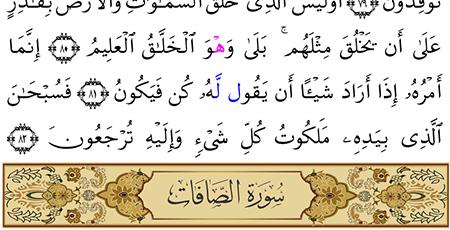 تُوقِدُونَ ﴿٨٠﴾ أَوَلَيْسَ ٱلَّذِى خَلَقَ ٱلسَّمَـٰوَٰتِ وَٱلْأَرْضَ بِقَـٰدِرٍ
عَلَىٰٓ أَن يَخْلُقَ مِثْلَهُم ۚ بَلَىٰ وَهْوَ ٱلْخَلَّـٰقُ ٱلْعَلِيمُ ﴿٨٠﴾ إِنَّمَآ
أَمْرُهُۥٓ إِذَآ أَرَادَ شَيْـًٔا أَن يَقُول لَّهُۥ كُن فَيَكُونُ ﴿٨١﴾ فَسُبْحَـٰنَ
ٱلَّذِى بِيَدِهِۦ مَلَكُوتُ كُلِّ شَىْءٍ وَإِلَيْهِ تُرْجَعُونَ ﴿٨٢﴾
سُورَةُ الصَّافَّاتِ